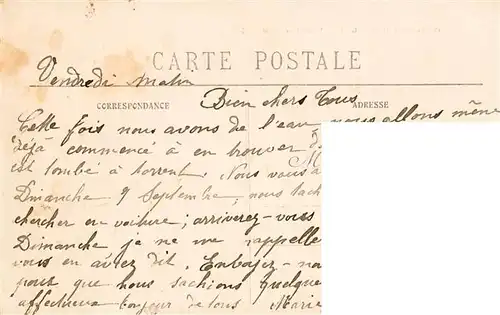 CARTE POSTALE
Vendredi matin
CORRESPONDANCE
ADRESSE
Bien chers Tous
Cette fois nous avons de l'eau, nous allons même
déjà commencé à en trouver d
est tombé à torrent. Nous vous a
Dimanche 9 Septembre, nous tach
chercher en voiture; arriverez-vous
Dimanche je ne me rappelle
vous en aviez dit. Envoyez-no
pour que nous sachions quelque
affectueux de tous Marie